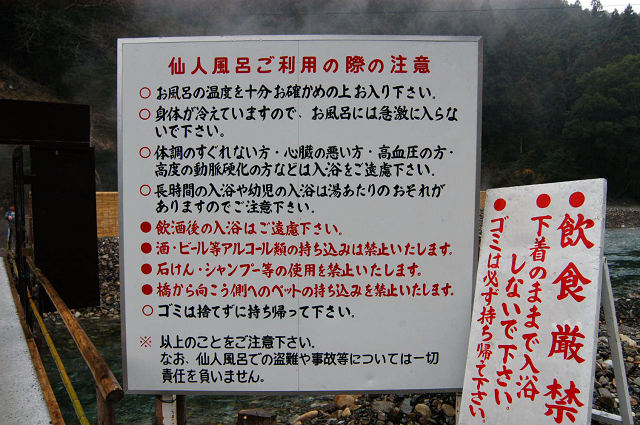 仙人風呂ご利用の際の注意
○お風呂の温度を十分お確かめの上お入り下さい。
○身体が冷えていますので、お風呂には急激に入らな
いで下さい。
○体調のすぐれない方・心臓の悪い方・高血圧の方・
高度の動脈硬化の方などは入浴をご遠慮下さい。
○長時間の入浴や幼児の入浴は湯あたりのおそれが
ありますのでご注意下さい。
●飲酒後の入浴はご遠慮下さい。
●酒・ビール等アルコール類の持ち込みは禁止いたします。
●石けん・シャンプー等の使用を禁止いたします。
●橋から向こう側へのペットの持ち込みを禁止いたします。
○ゴミは捨てずに持ち帰って下さい。
※以上のことをご注意下さい。
なお、仙人風呂での盗難や事故等については一切
責任を負いません。
●飲食厳禁
●下着のままで入浴
しないで下さい。
●ゴミは必ず持ち帰って下さい